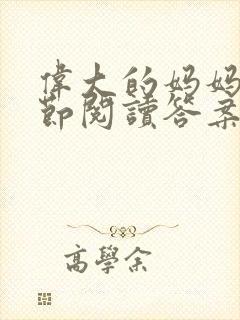 偉大的妈妈
節閱讀答案
高學余